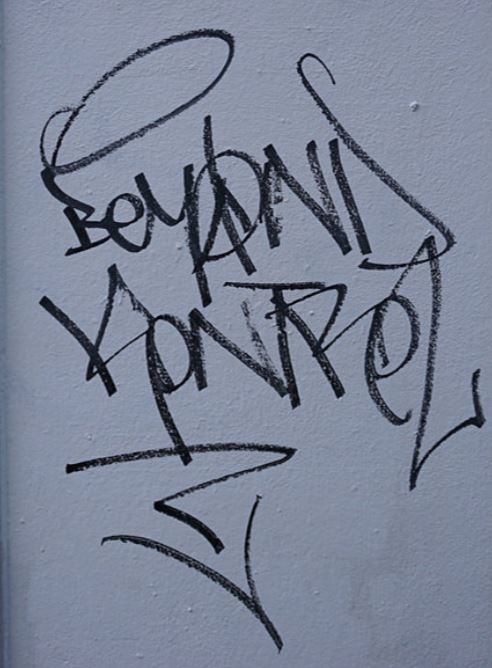 BEYOND
KONTROL